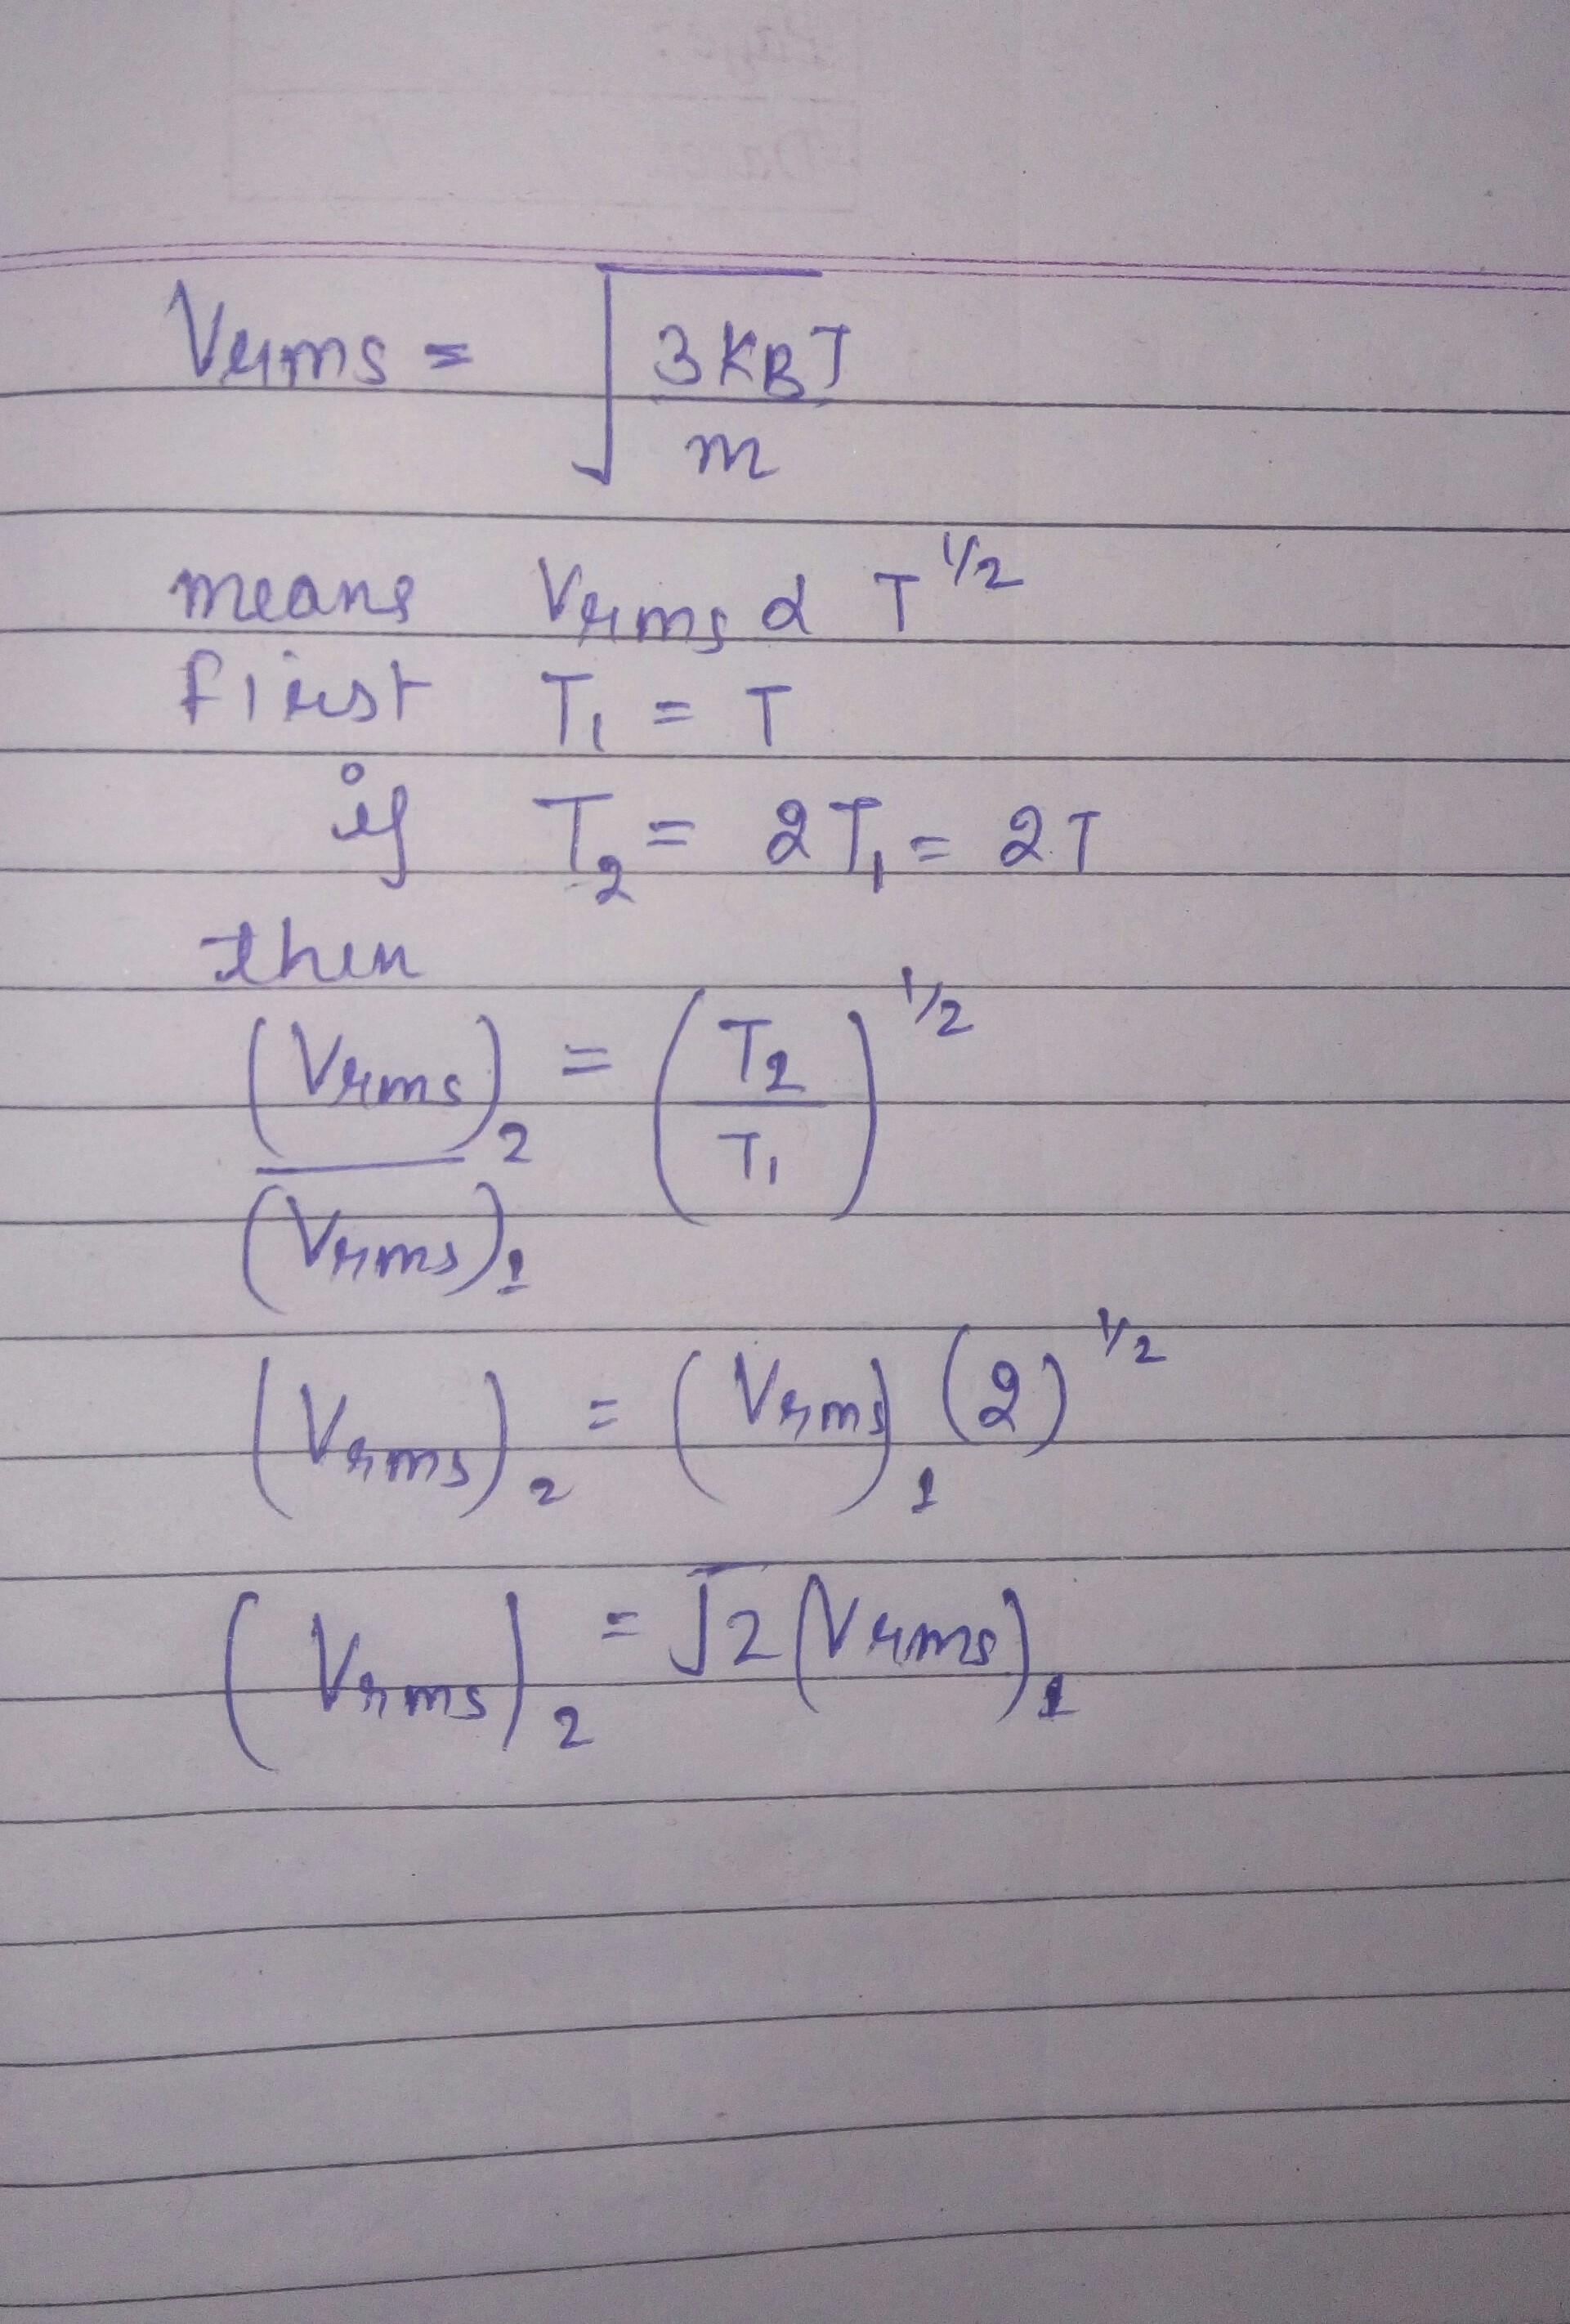 Vrms = √(3KBT/m)
means Vrms α T^1/2
first T₁ = T
if T₂ = 2T₁ = 2T
then
(Vrms)₂/(Vrms)₁ = (T₂/T₁)^1/2
(Vrms)₂ = (Vrms)₁ (2)^1/2
(Vrms)₂ = √2 (Vrms)₁